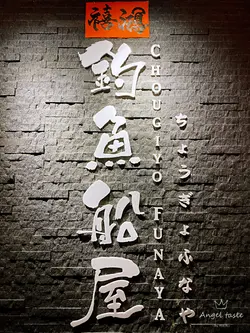 禧鴻
釣魚船屋
CHOUGIYO FUNAYA
ちょうぎょふなや
Angel taste